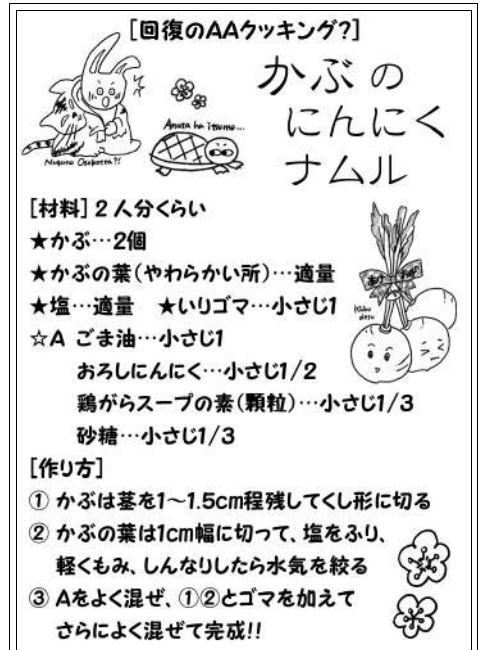 [回復のAAクッキング?]
かぶの
にんにく
ナムル
Anata ha itsumo...
Nuguno Osokatta?!
[材料] 2人分くらい
★かぶ…2個
★かぶの葉(やわらかい所)…適量
★塩…適量 ★いりゴマ…小さじ1
☆A ごま油…小さじ1
おろしにんにく…小さじ1/2
鶏がらスープの素(顆粒)…小さじ1/3
砂糖…小さじ1/3
Kabu
desu
[作り方]
① かぶは茎を1〜1.5cm程残してくし形に切る
② かぶの葉は1cm幅に切って、塩をふり、
軽くもみ、しんなりしたら水気を絞る
③ Aをよく混ぜ、①②とゴマを加えて
さらによく混ぜて完成!!